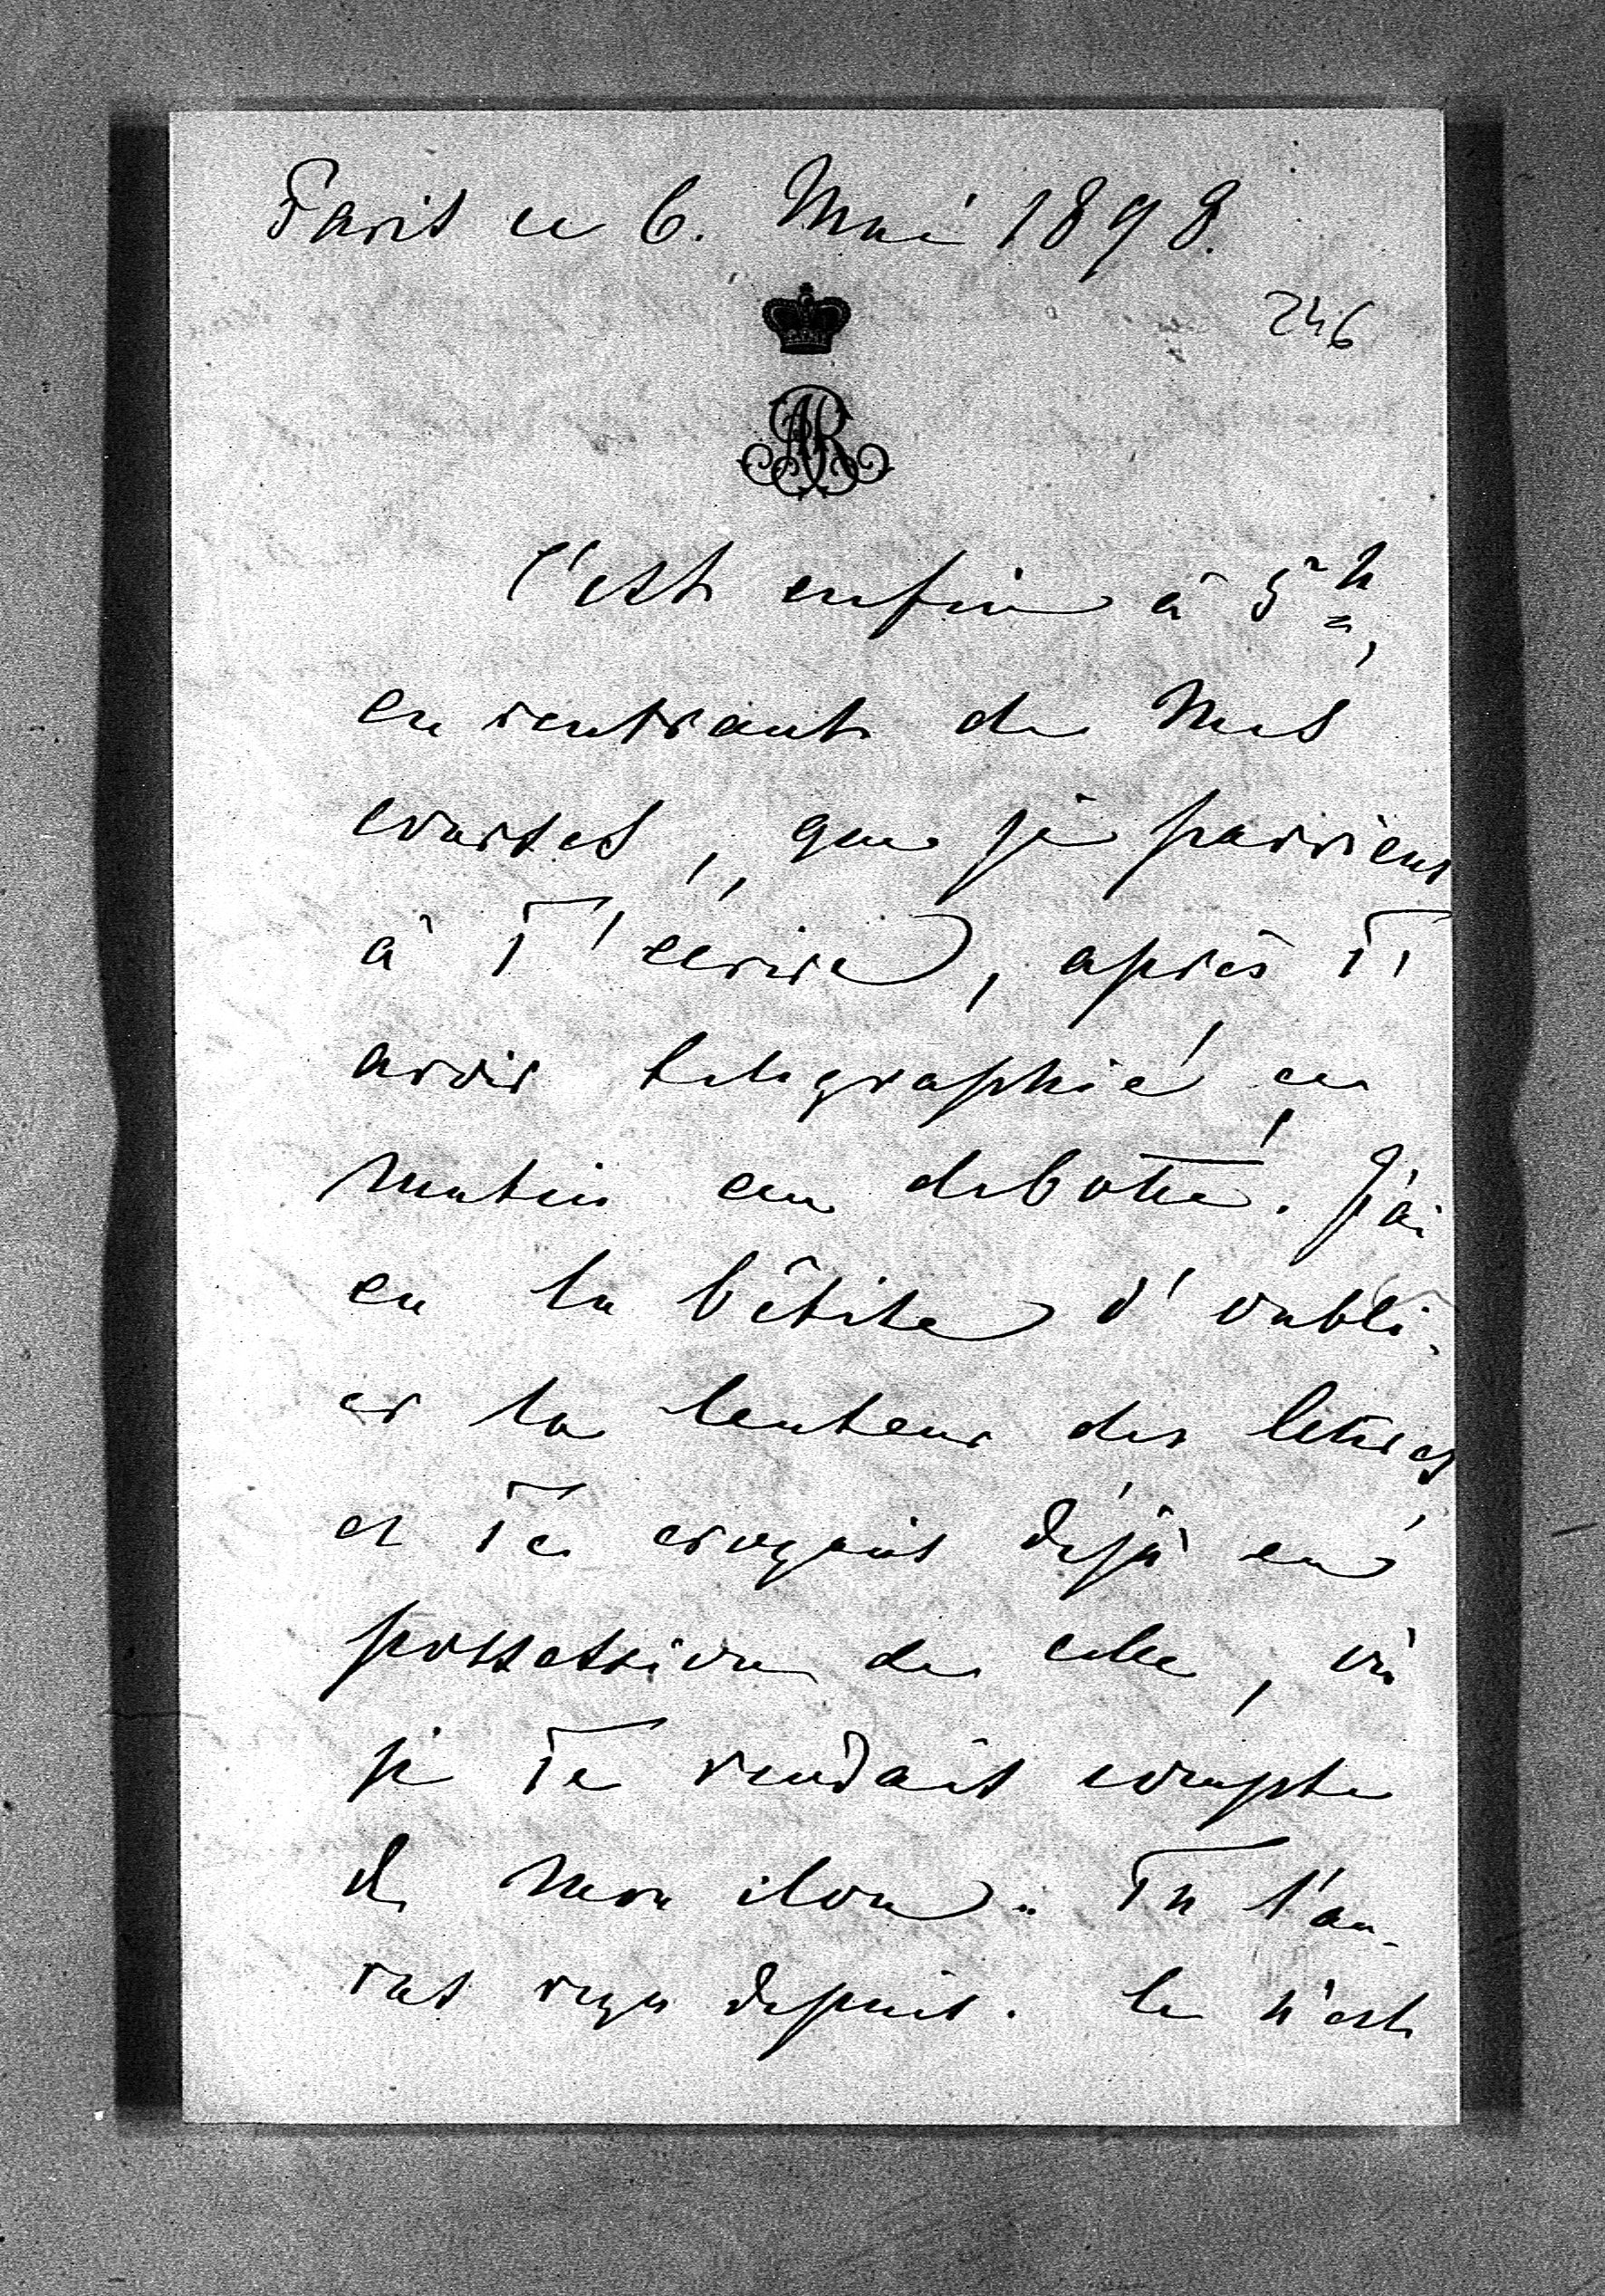 Paris ce 6. Mai 1898.
246
AR
C'est enfin à 5h,
en rentrant de mes
courses, que je parviens
à T'écrire, après T'
avoir telegraphié ce
matin au debotté. J'ai
eu la bêtise d'oubli-
er la lenteur des lettres
et Te croyais déjà en
possession de celle, où
je Te rendais compte
de mon
Tu l'au-
ras reçu depuis. Ce n'est